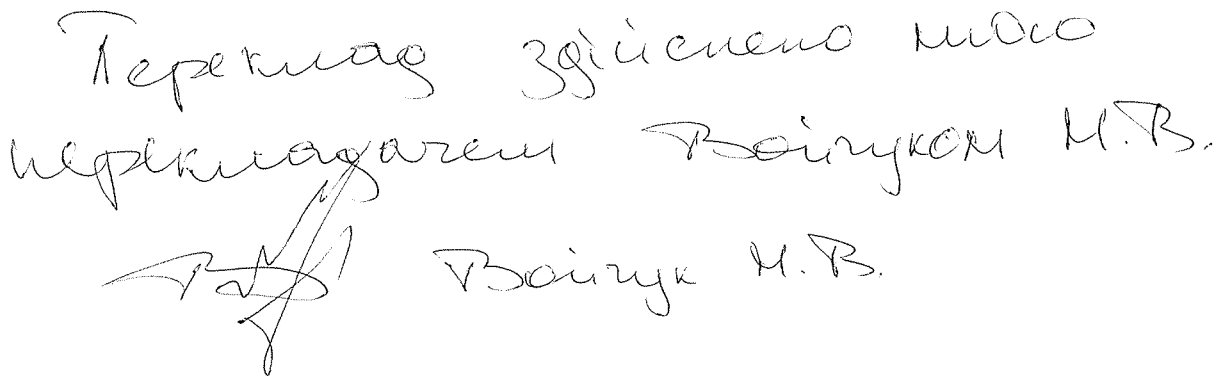 Переклад здійснено мною
перекладачем Войчуком М.В.
Войчук М.В.